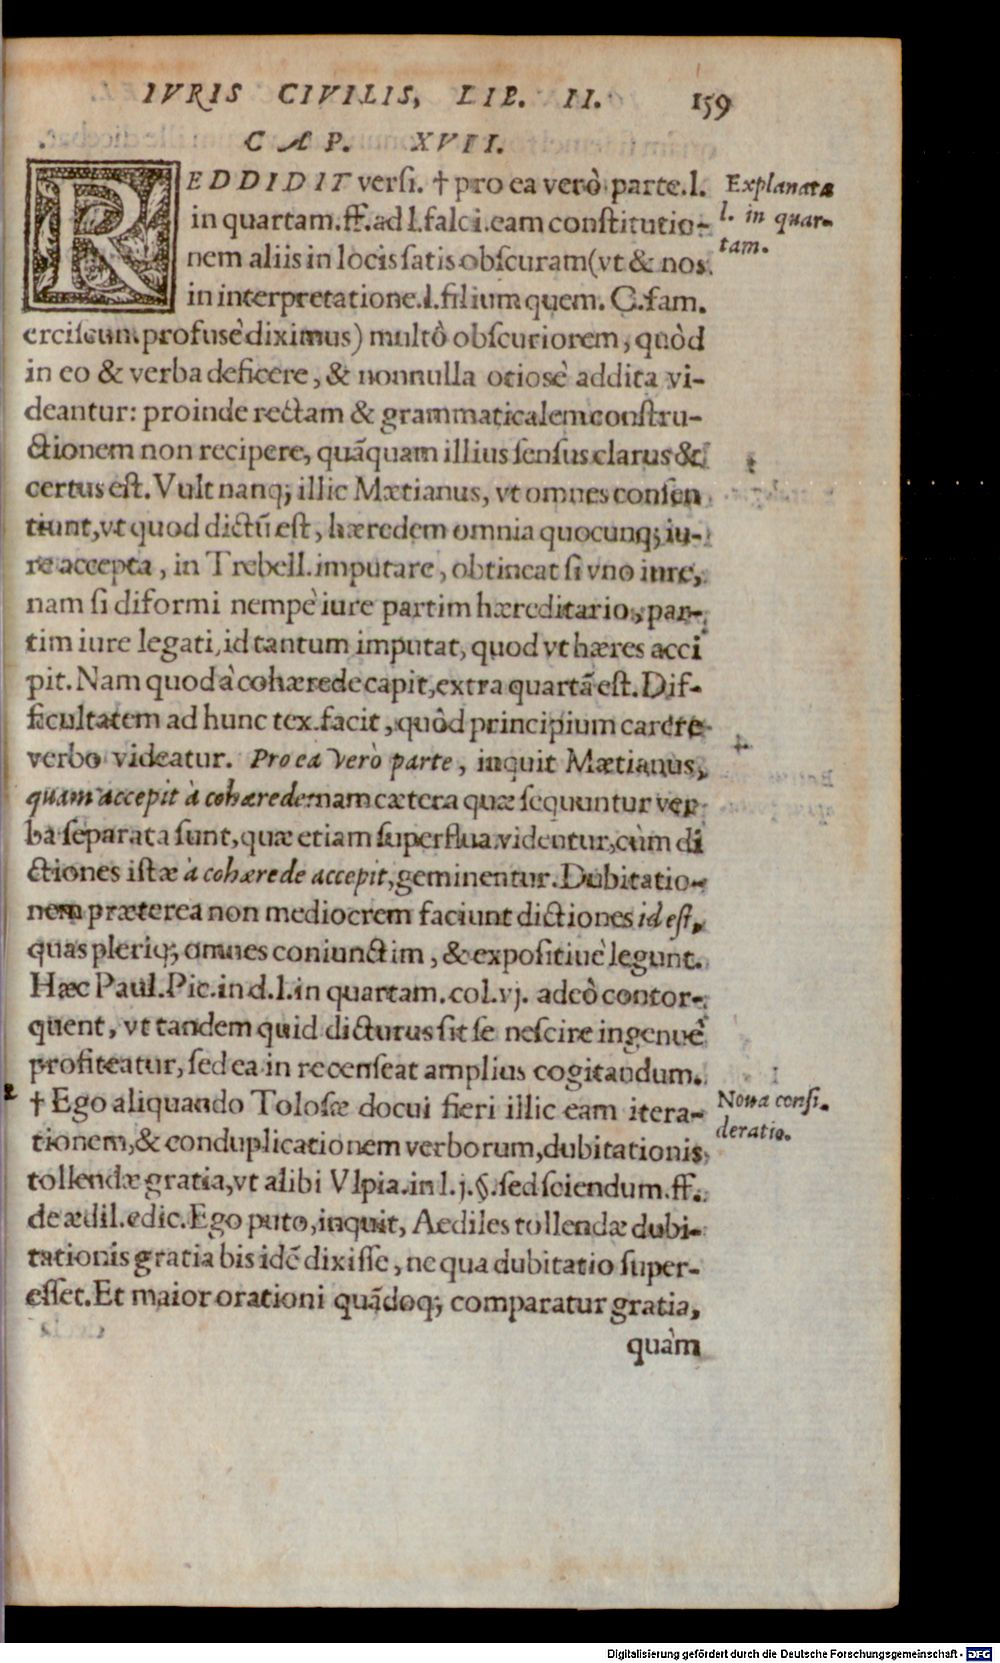 IVRIS CIVILIS, LIB. II. 159
CAP. XVII.
REDDIDIT versi. † pro ea verò parte. l.
in quartam. ff. ad l. falci. eam constitutio-
nem aliis in locis satis obscuram (vt & nos
in interpretatione. l. filium quem. C. fam.
erciscun. profusè diximus) multò obscuriorem, quòd
in eo & verba deficere, & nonnulla otiosè addita vi-
deantur: proinde rectam & grammaticalem constru-
ctionem non recipere, quãquam illius sensus clarus &
certus est. Vult nanq; illic Mætianus, vt omnes consen
tiunt, vt quod dictũ est, hæredem omnia quocunq; iu-
re accepta, in Trebell. imputare, obtineat si vno iure,
nam si diformi nempè iure partim hæreditario, par-
tim iure legati, id tantum imputat, quod vt hæres acci
pit. Nam quod à cohærede capit, extra quartã est. Dif-
ficultatem ad hunc tex. facit, quòd principium carere
verbo videatur. Pro ea verò parte, inquit Mætianus,
quam accepit à cohærede: nam cætera quæ sequuntur ver
ba separata sunt, quæ etiam superflua videntur, cùm di
ctiones istæ à cohærede accepit, geminentur. Dubitatio-
nem præterea non mediocrem faciunt dictiones id est,
quas pleriq; omnes coniunctim, & expositiuè legunt.
Hæc Paul. Pic. in d. l. in quartam. col. vj. adeò contor-
quent, vt tandem quid dicturus sit se nescire ingenuè
profiteatur, sed ea in re censeat amplius cogitandum.
† Ego aliquando Tolosæ docui fieri illic eam itera-
tionem, & conduplicationem verborum, dubitationis
tollendæ gratia, vt alibi Vlpia. in l. j. §. sed sciendum. ff.
de ædil. edic. Ego puto, inquit, Aediles tollendæ dubi-
tationis gratia bis idẽ dixisse, ne qua dubitatio super-
esset. Et maior orationi quãdoq; comparatur gratia,
quàm
Explanata
l. in quar-
tam.
Noua consi-
deratio.
Digitalisierung gefördert durch die Deutsche Forschungsgemeinschaft - DFG